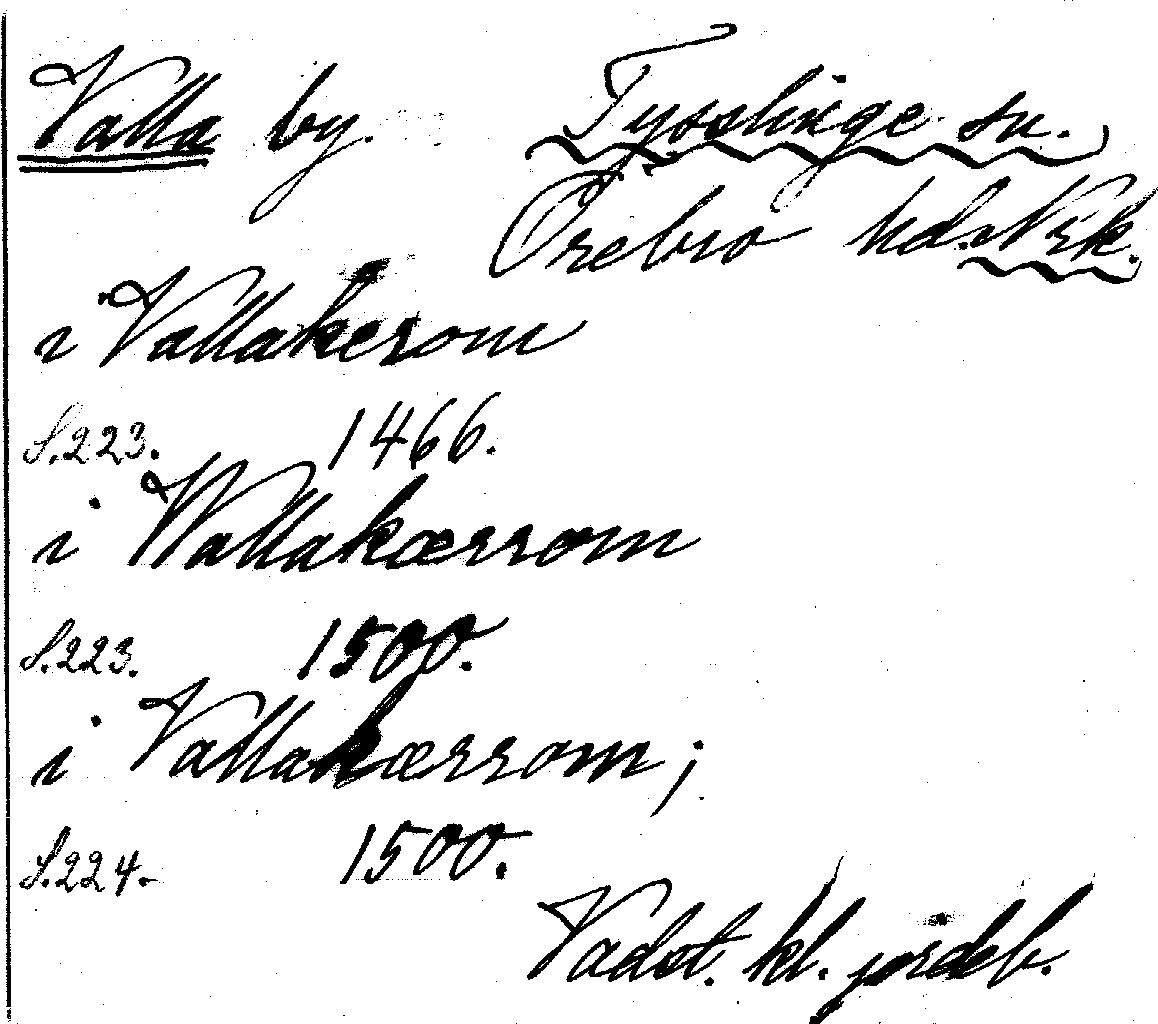 Valla by. Tysslinge sn.
Örebro hd. Nrk.
i Vallakerom
S. 223. 1466.
i Wallakærrom
S. 223. 1500.
i Vallakærrom;
S. 224. 1500.
Vadst. kl. jordeb.